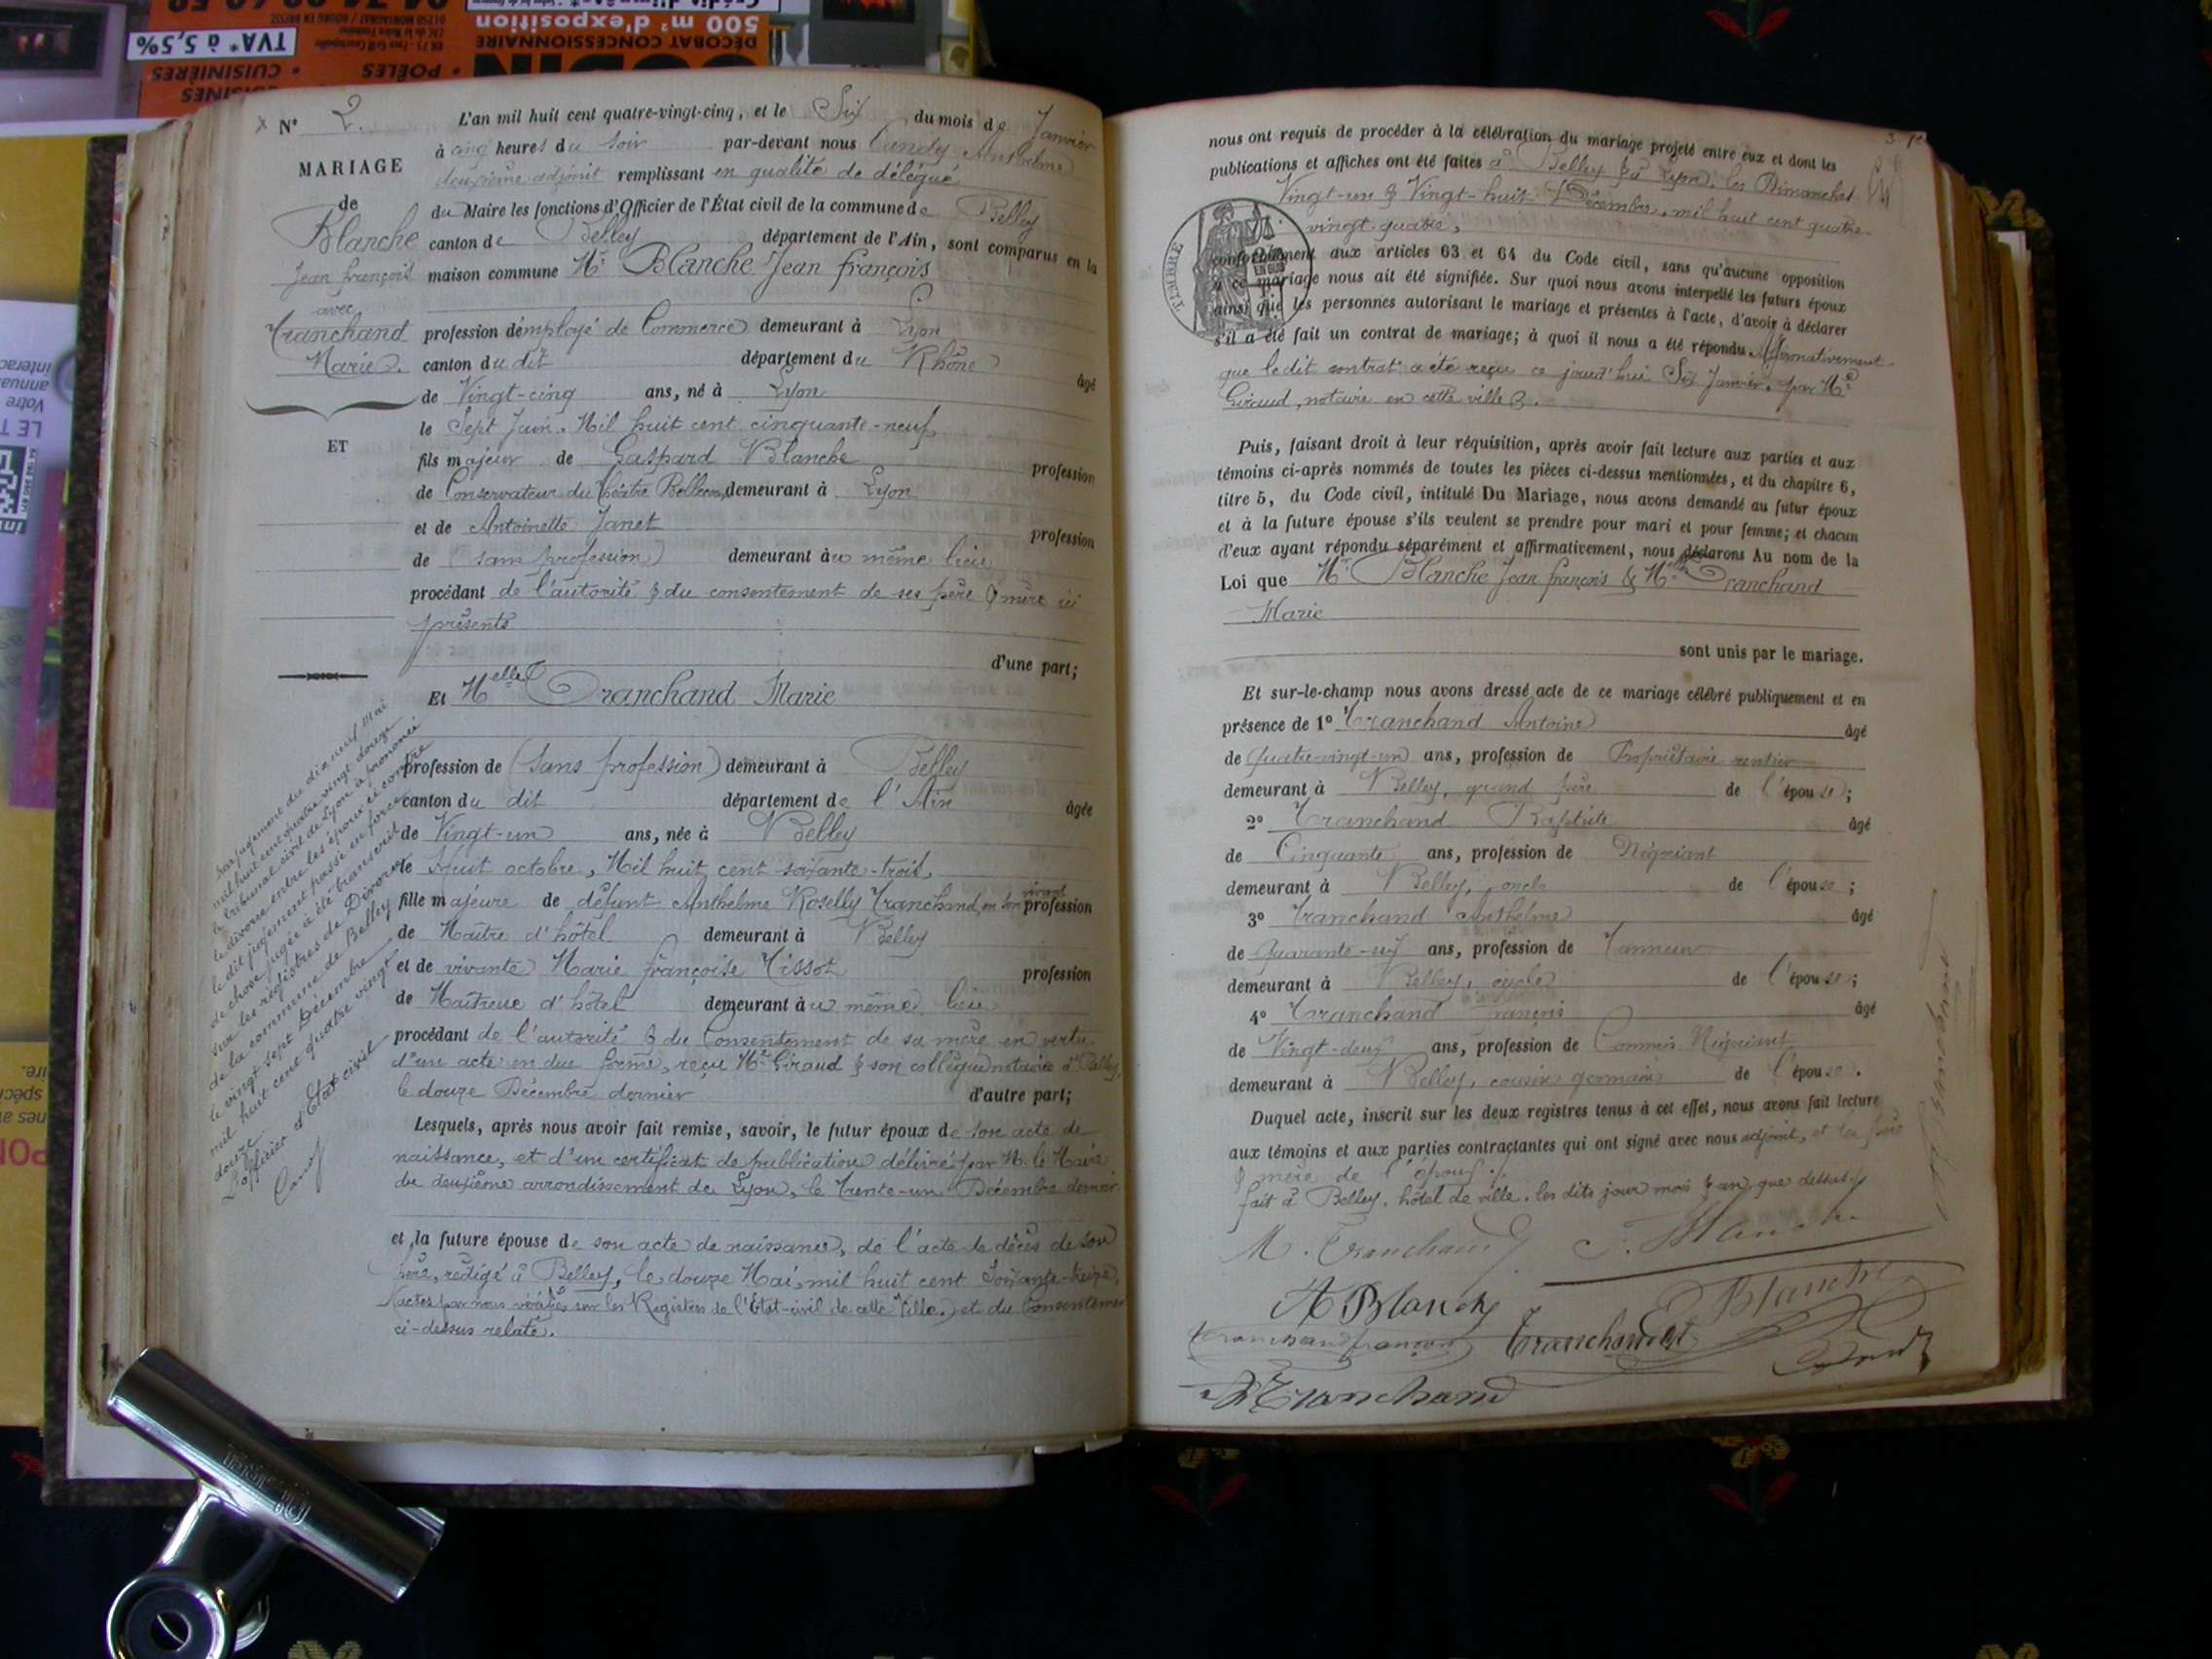 N° 2.
MARIAGE
de
Blanche
Jean François
avec
Tranchand
Marie.
ET
L'an mil huit cent quatre-vingt-cinq, et le Six du mois de Janvier
à cinq heures du soir par-devant nous
deuxième adjoint remplissant en qualité de délégué
du Maire les fonctions d'Officier de l'État civil de la commune de Belley
canton de Belley département de l'Ain, sont comparus en la
maison commune Mr Blanche Jean François
profession d'employé de Commerce demeurant à Lyon
canton du dit département du Rhône âgé
de Vingt-cinq ans, né à Lyon
le Sept Juin, Mil huit cent cinquante-neuf
fils majeur de Gaspard Blanche profession
de Conservateur du théâtre Bellecour, demeurant à Lyon
et de Antoinette Janet profession
de (sans profession) demeurant au même lieu
procédant de l'autorité & du consentement de ses père & mère ici
présents
d'une part;
Et Melle Tranchand Marie
profession de (Sans profession) demeurant à Belley
canton du dit département de l'Ain âgée
de Vingt-un ans, née à Belley
le huit octobre, Mil huit cent soixante-trois,
fille majeure de défunt Anthelme Roselly Tranchand, en son vivant profession
de Maître d'hôtel demeurant à Belley
et de vivante Marie Françoise Tissot profession
de Maîtresse d'hôtel demeurant au même lieu
procédant de l'autorité & du Consentement de sa mère en vertu
d'un acte en due forme, reçu Me Giraud & son collègue notaire à Belley,
le douze Décembre dernier d'autre part;
Lesquels, après nous avoir fait remise, savoir, le futur époux de son acte de
naissance, et d'un certificat de publication délivré par M. le Maire
du deuxième arrondissement de Lyon, le trente-un Décembre dernier
et la future épouse de son acte de naissance, de l'acte de décès de son
père, rédigé à Belley, le douze Mai, mil huit cent Soixante-treize,
(actes par nous vérifiés sur les Registres de l'État-civil de cette Ville.) et du Consentement
ci-dessus relaté.
par jugement du dix neuf Mai
mil huit cent quatre vingt douze
le tribunal civil de Lyon a prononcé
le divorce entre les époux ci contre
le dit jugement passé en force
de chose jugée a été transcrit
sur les registres de Divorce
de la commune de Belley
le vingt sept Décembre
mil huit cent quatre vingt
douze
L'officier d'État civil
nous ont requis de procéder à la célébration du mariage projeté entre eux et dont les
publications et affiches ont été faites à Belley & à Lyon, les Dimanches
Vingt-un & Vingt-huit Décembre, mil huit cent quatre-
vingt-quatre,
TIMBRE
conformément aux articles 63 et 64 du Code civil, sans qu'aucune opposition
à ce mariage nous ait été signifiée. Sur quoi nous avons interpellé les futurs époux
ainsi que les personnes autorisant le mariage et présentes à l'acte, d'avoir à déclarer
s'il a été fait un contrat de mariage; à quoi il nous a été répondu Affirmativement
que le dit contrat a été reçu ce jourd'hui Six Janvier, par Me
Giraud, notaire en cette ville
Puis, faisant droit à leur réquisition, après avoir fait lecture aux parties et aux
témoins ci-après nommés de toutes les pièces ci-dessus mentionnées, et du chapitre 6,
titre 5, du Code civil, intitulé Du Mariage, nous avons demandé au futur époux
et à la future épouse s'ils veulent se prendre pour mari et pour femme; et chacun
d'eux ayant répondu séparément et affirmativement, nous déclarons Au nom de la
Loi que Mr Blanche Jean François & Melle Tranchand
Marie
sont unis par le mariage.
Et sur-le-champ nous avons dressé acte de ce mariage célébré publiquement et en
présence de 1° Tranchand Antoine âgé
de Quatre-vingt-un ans, profession de Propriétaire rentier
demeurant à Belley, grand père de l'épouse;
2° Tranchand Baptiste âgé
de Cinquante ans, profession de Négociant
demeurant à Belley, oncle de l'épouse;
3° Tranchand Anthelme âgé
de Quarante-neuf ans, profession de Tanneur
demeurant à Belley, oncle de l'épouse;
4° Tranchand François âgé
de Vingt-deux ans, profession de Commis Négociant
demeurant à Belley, cousin germain de l'épouse.
Duquel acte, inscrit sur les deux registres tenus à cet effet, nous avons fait lecture
aux témoins et aux parties contractantes qui ont signé avec nous adjoint, et les père
& mère de l'époux.
fait à Belley, hôtel de ville, les dits jour mois & an que dessus.
M. Tranchand
J. Blanche
A Blanche
Blanche
Tranchand françois
Tranchand
Tranchand
DÉCOBAT CONCESSIONNAIRE
500 m² d'exposition
TVA* à 5,5%
• POÊLES
• CUISINIÈRES